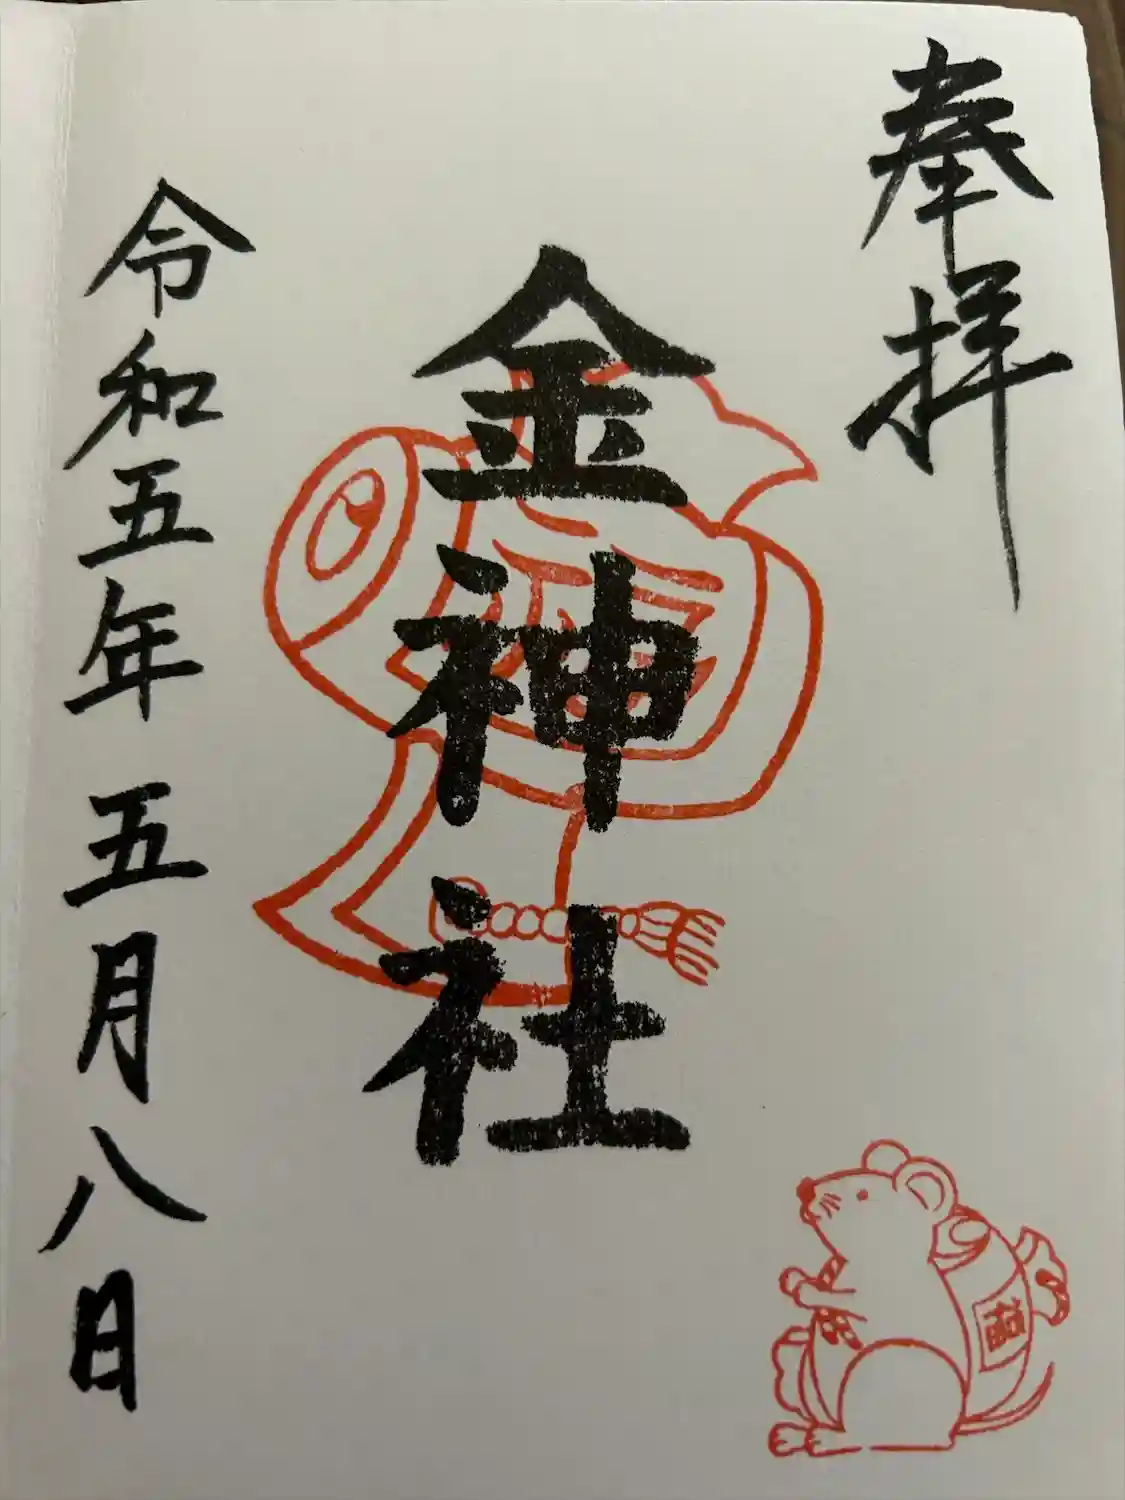 奉拝
金神社
令和五年 五月八日
福